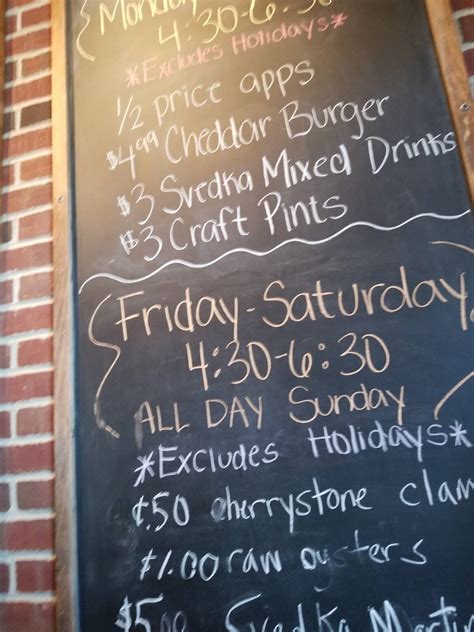 Monday
4:30-6:30
*Excludes Holidays*
1/2 price apps
$4.99 Cheddar Burger
$3 Svedka Mixed Drinks
$3 Craft Pints
Friday-Saturday
4:30-6:30
ALL DAY Sunday
*Excludes Holidays*
¢.50 cherrystone clam
$1.00 raw oysters
Svedka Martin